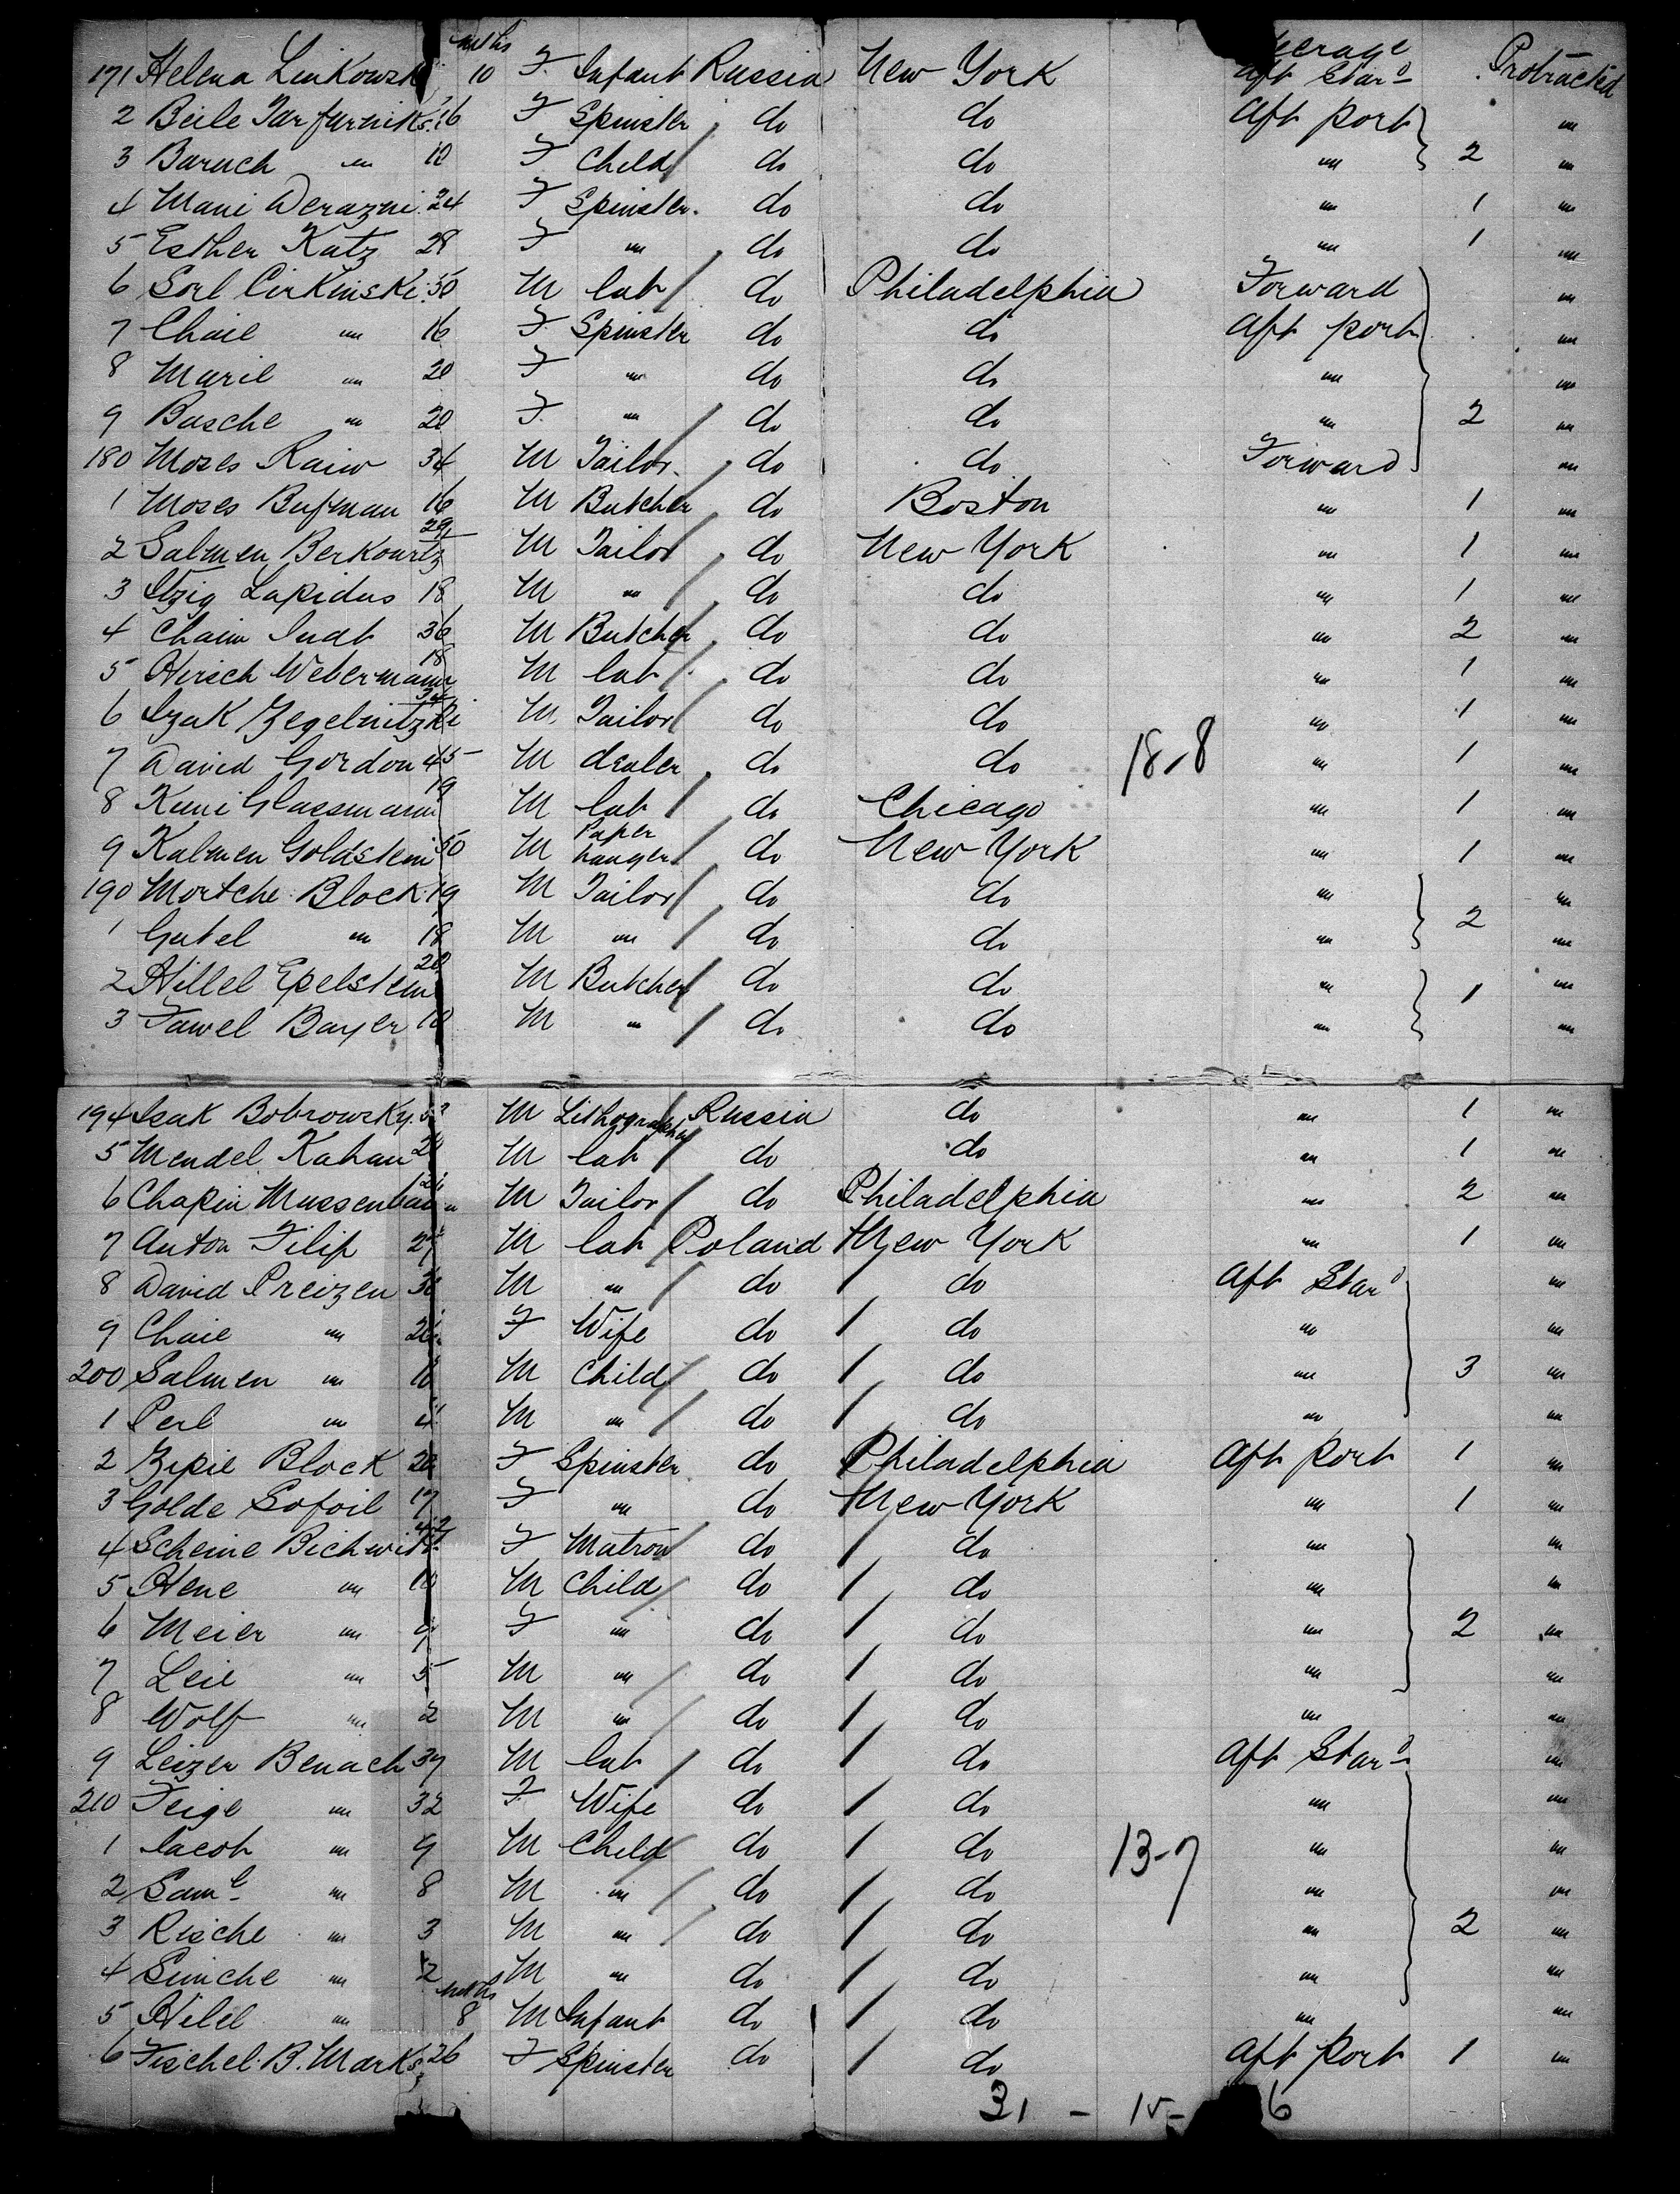 mths
171 Helena Linkowsk 10 F. Infant Russia New York Aft Star^d Protracted
2 Beile 16 F Spinster do do Aft port "
3 Baruch " 10 F Child do do " 2 "
4 Mani Derazni 24 F Spinster. do do " 1 "
5 Esther Katz 28 F " do do " 1 "
6 Sorl Cirkinski 50 M lab do Philadelphia Forward "
7 Chaie " 16 F. Spinster do do Aft port "
8 Maril " 20 F " do do " "
9 Basche " 20 F. " do do " 2 "
180 Moses Raiw 34 M Tailor. do do Forward "
1 Moses Bufman 16 M Butcher do Boston " 1 "
2 Salmen Berkowitz 29 M Tailor do New York " 1 "
3 Itzig Lapidus 18 M " do do " 1 "
4 Chaim Judt 36 M Butcher do do " 2 "
5 Hirsch Webermann 18 M lab do do " 1 "
6 Izak Zegelnitzki 34 M Tailor do do " 1 "
7 David Gordon 45 M dealer do do 18-8 " 1 "
8 Kuni Glassmann 19 M lab do Chicago " 1 "
9 Kalmen Goldstein 50 M Paper hanger do New York " 1 "
190 Mortche Block 19 M Tailor do do " "
1 Gutel " 18 M " do do " 2 "
2 Hillel Epelstein 20 M Butcher do do " "
3 Fawel Bayer 18 M " do do " 1 "
194 Isak Bobrowsky M Lithographer Russia do " 1 "
5 Mendel Kahan M lab do do " 1 "
6 Chapin Mussenbaum M Tailor do Philadelphia " 2 "
7 Anton Filip 27 M lab Poland New York " 1 "
8 David Preizen M " do do Aft Star^d "
9 Chaie " F Wife do do " "
200 Salmen " M Child do do " 3 "
1 Perl " 4 M " do do " "
2 Zipie Block F Spinster do Philadelphia Aft port 1 "
3 Golde Sofoil 17 F " do New York " 1 "
4 Scheine F Matron do do " "
5 Hene " M Child do do " "
6 Meier " 9 F " do do " 2 "
7 Leie " 5 M " do do " "
8 Wolf " 2 M " do do " "
9 Leizer Benach 37 M lab do do Aft Star^d "
210 Feige " 32 F Wife do do " "
1 Jacob " 9 M Child do do 13-7 " "
2 Sam^l " 8 M " do do " "
3 Rische " 3 M " do do " 2 "
4 Simche " 2 M " do do " "
mths
5 Hilel " 8 M Infant do do " "
6 Fischel B. Marks 26 F Spinster do do Aft port 1 "
31 - 15- 6